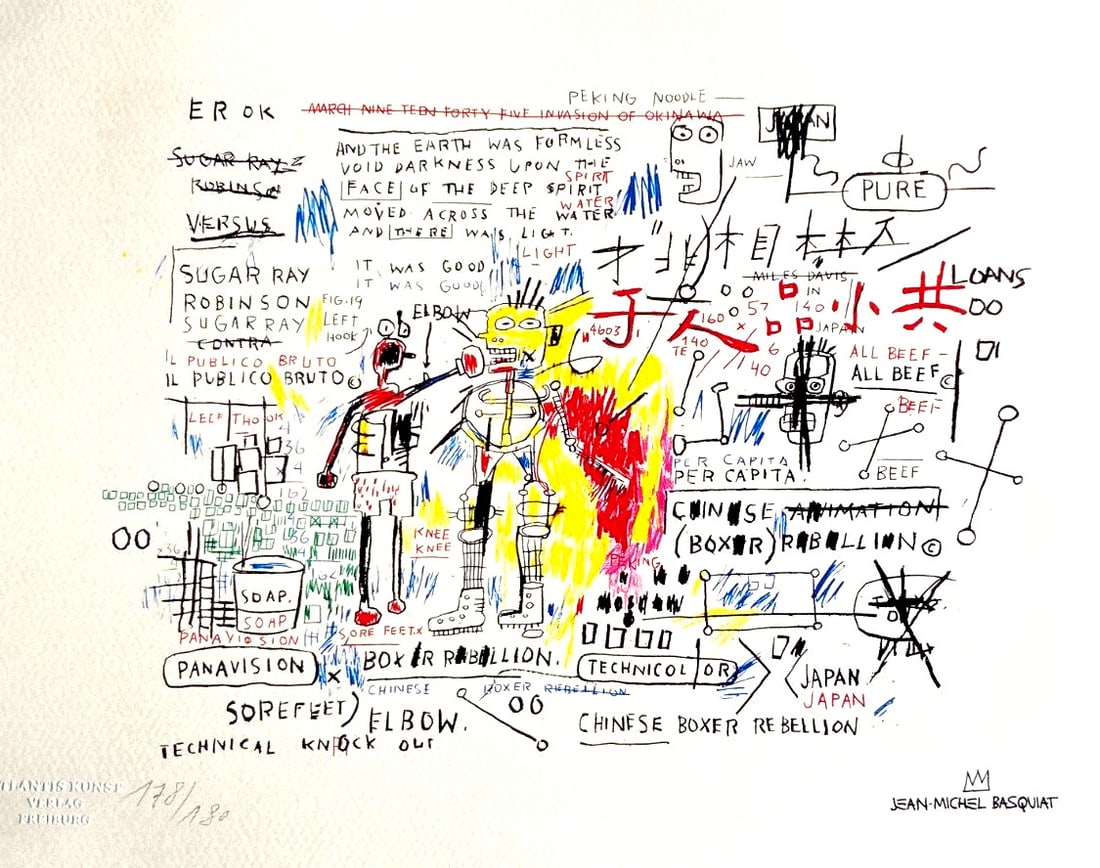 PEKING NOODLE
EROK
MARCH NINE TEEN FORTY FIVE INVASION OF OKINAWA
JAPAN
SUGAR RAY
ROBINSON
VERSUS
AND THE EARTH WAS FORMLESS
VOID DARKNESS UPON THE
SPIRIT
FACE OF THE DEEP SPIRIT
WATER
MOVED ACROSS THE WATER
AND THERE WAS LIGHT.
LIGHT
JAW
PURE
SUGAR RAY
ROBINSON
SUGAR RAY
CONTRA
IL PUBLICO BRUTO
IL PUBLICO BRUTO©
IT WAS GOOD
IT WAS GOOD
FIG.19
LEFT
HOOK
ELBOW
MILES DAVIS
IN
140
JAPAN
LOANS
OO
于人品小共
4603
160
57
x
6
140
TE
40
ALL BEEF-
ALL BEEF©
BEEF
BEEF
PER CAPITA
PER CAPITA.
CHINESE ANIMATION
(BOXER) REBELLION©
LEEF THO OK
36
4
162
OO
36
KNEE
KNEE
PEKING
MOSCOW
SOAP.
SOAP
PANAVISION
PANAVISION
SORE FEET.x
x
BOXER REBELLION.
TECHNICOLOR
JAPAN
JAPAN
CHINESE BOXER REBELLION
OO
SOREFEET)
ELBOW.
CHINESE BOXER REBELLION
TECHNICAL KNOCK OUT
TLANTIS KUNST
VERLAG
FREIBURG
178/180
JEAN-MICHEL BASQUIAT